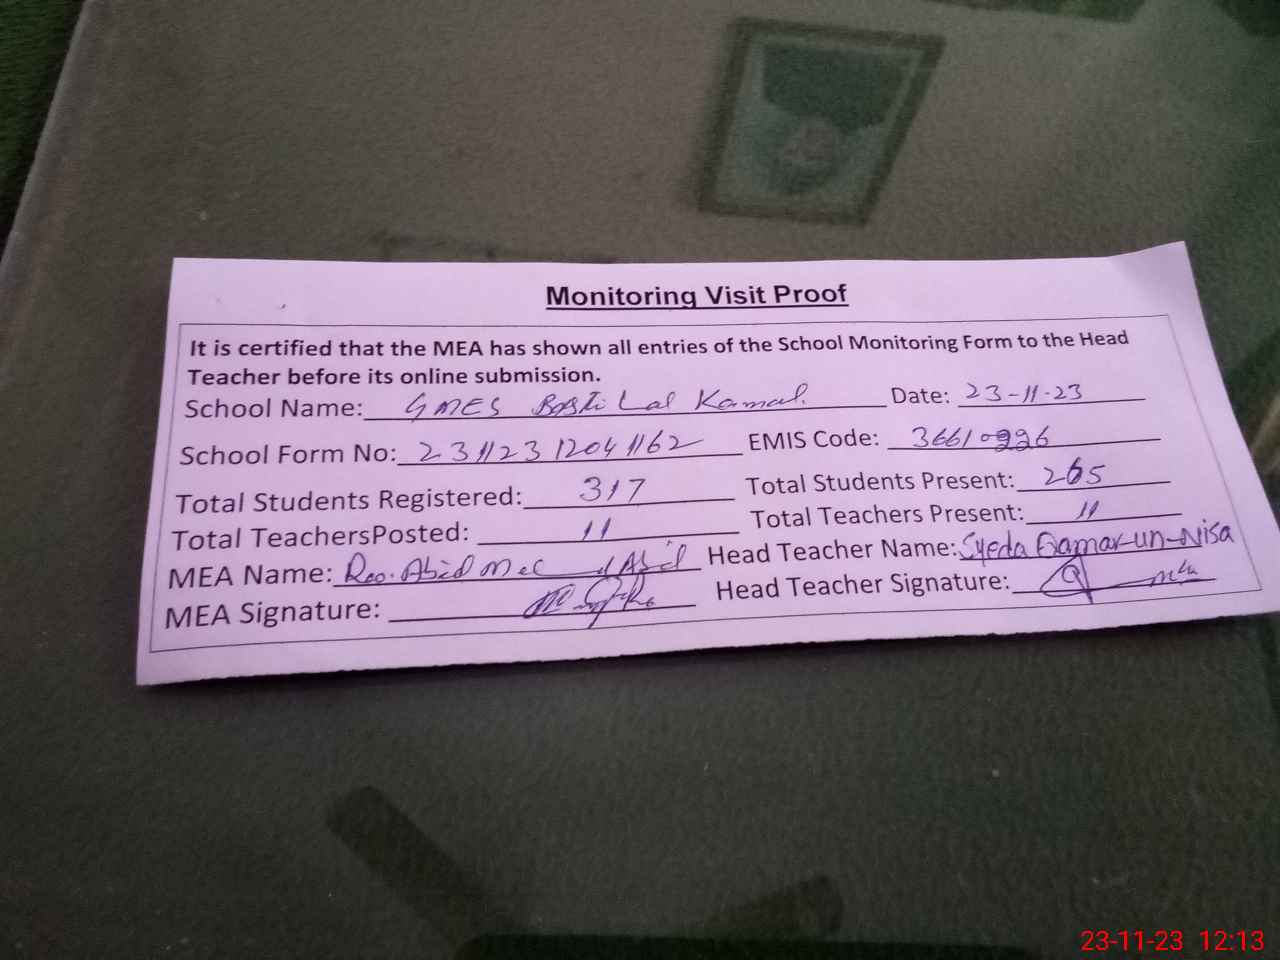 Monitoring Visit Proof
It is certified that the MEA has shown all entries of the School Monitoring Form to the Head
Teacher before its online submission.
School Name: GMES Basti Lal Kamal. Date: 23-11-23
School Form No: 231123 12041162 EMIS Code: 36610226
Total Students Registered: 317 Total Students Present: 265
Total TeachersPosted: 11 Total Teachers Present: 11
MEA Name: Rao. Abid Head Teacher Name: Syeda Qamar-un-Nisa
MEA Signature: Head Teacher Signature:
23-11-23 12:13